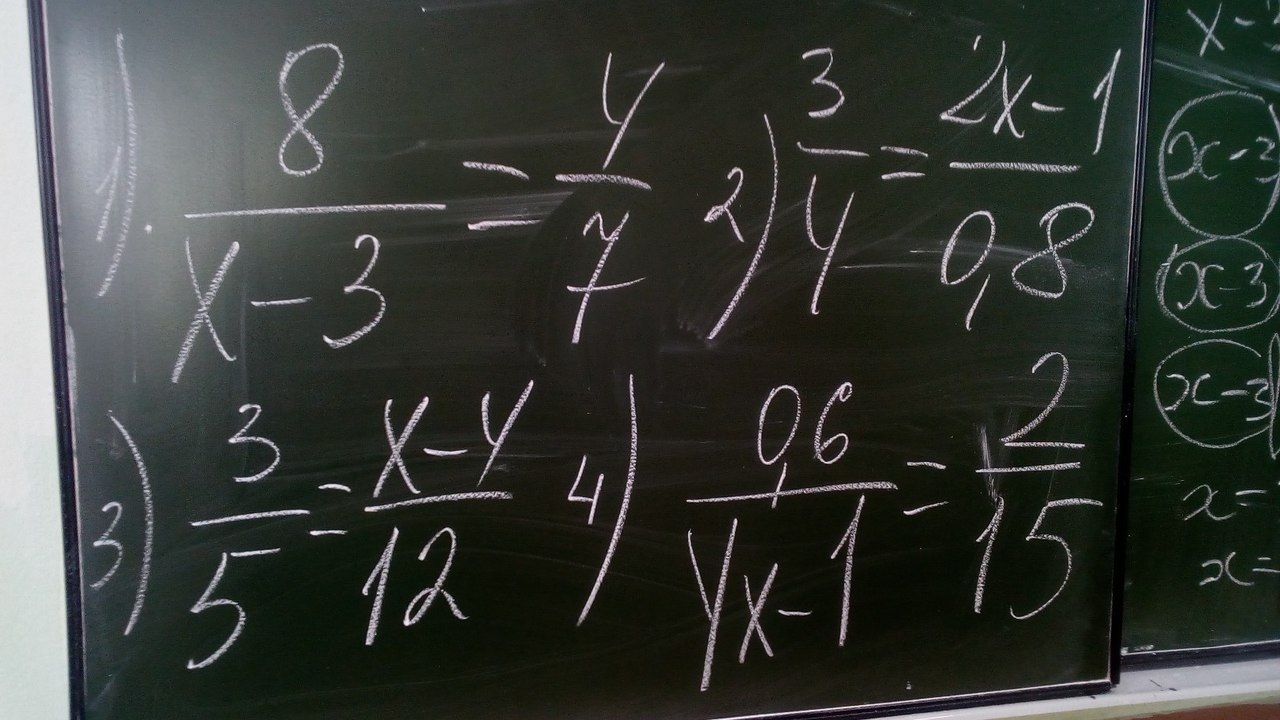 1). 8/(x-3) = 4/7
2) 3/4 = (2x-1)/0,8
3) 3/5 = (x-4)/12
4) 0,6/(4x-1) = 2/15
x-
x-3
x-3
x-3
x=
x=